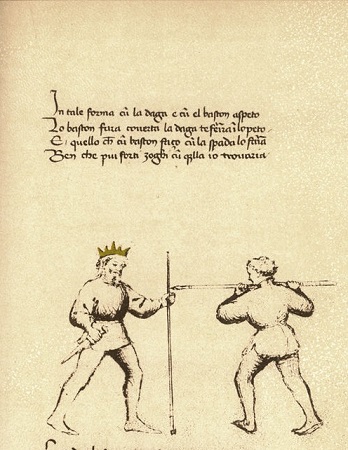 In tale forma cū la daga e cū el baston aspeto
Lo baston fara coverta la daga te ferirà ī lo peto
E quello ch cū baston fazo cū la spada lo faria
Ben che più forti zoghi cū q̄lla io trovaria